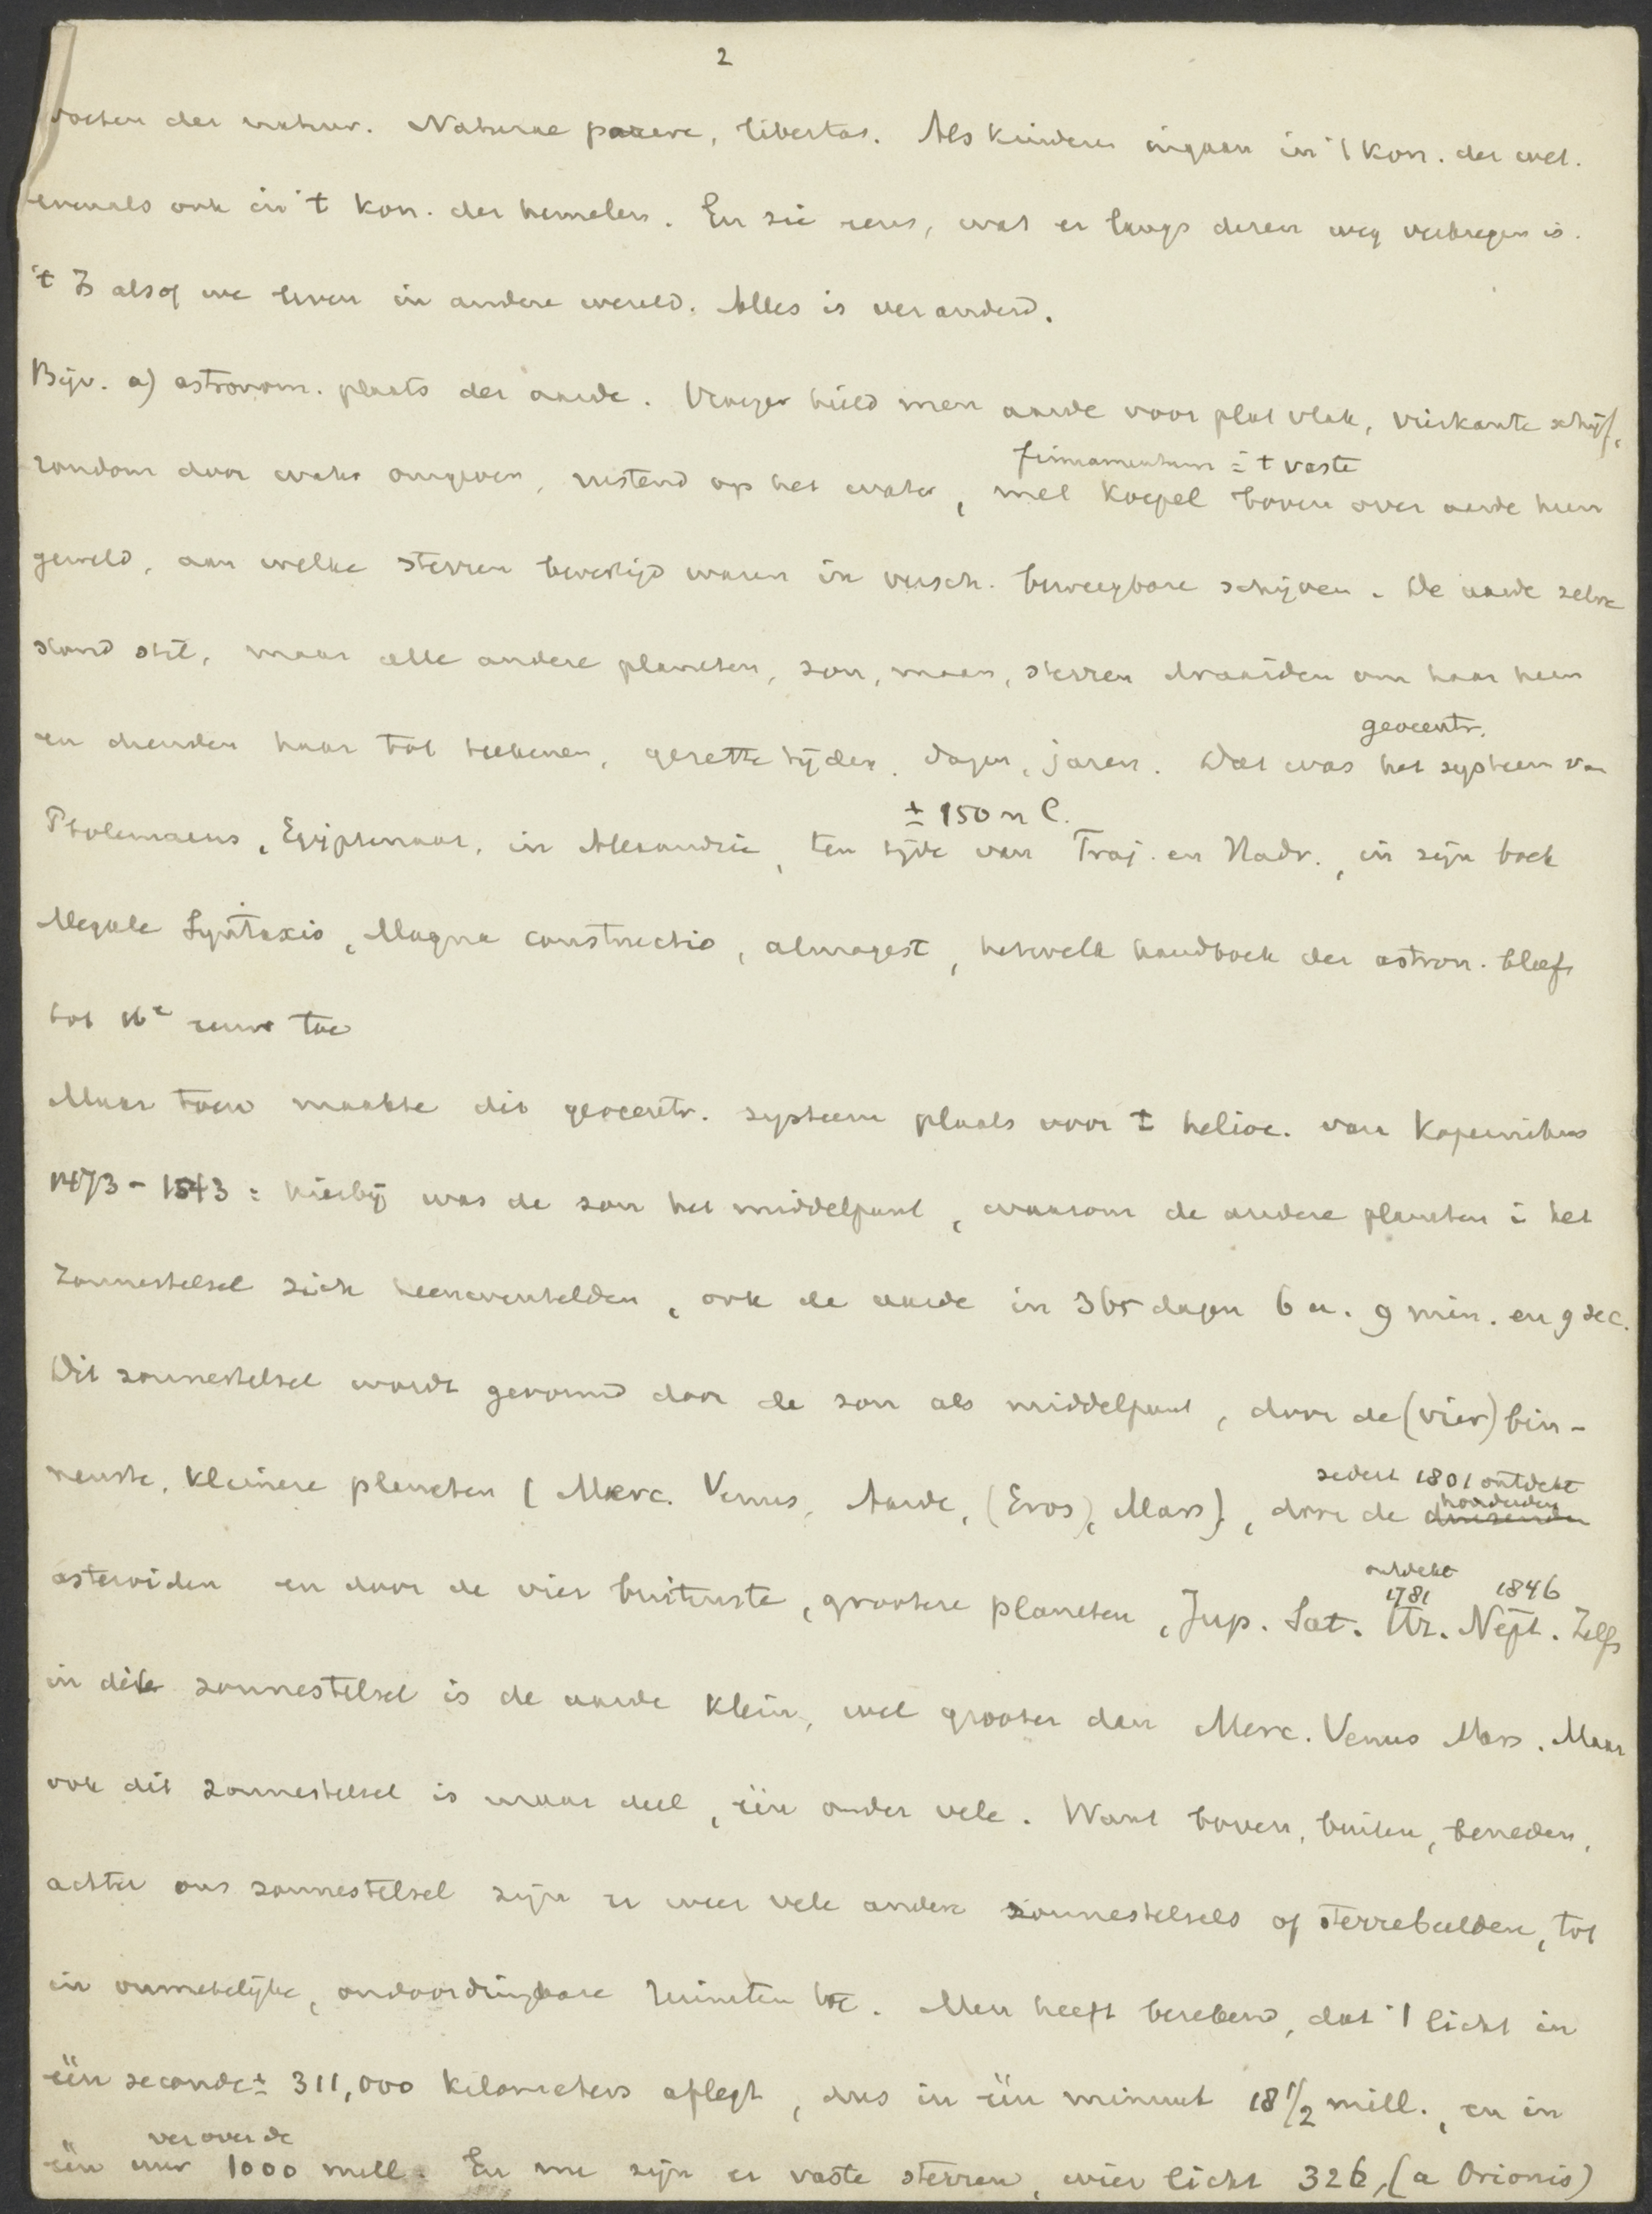 2
vorschen der natuur. Naturae parere, libertas. Als kinderen ingaan in 't kon. der wet.
evenals ook in 't kon. der hemelen. En zie eens, wat er langs dezen weg verkregen is.
't Is alsof we leven in andere wereld. Alles is veranderd.
Bijv. a) astronom. plaats der aarde. Vroeger hield men aarde voor plat vlak, vierkante schijf,
firmamentum = 't vaste
rondom door water omgeven, rustend op het water, met koepel boven over aarde heen
gewelfd, aan welke sterren bevestigd waren in versch. beweegbare schijven. De aarde zelve
stond stil, maar alle andere planeten, zon, maan, sterren draaiden om haar heen
geocentr.
en dienden haar tot teekenen, gezette tijden, dagen, jaren. Dat was het systeem van
± 150 n C.
Ptolemaeus, Egyptenaar, in Alexandrië, ten tijde van Traj. en Hadr., in zijn boek
Megale Syntaxis, Magna constructio, almagest, hetwelk handboek der astron. bleef
tot 16e eeuw toe
Maar toen maakte dit geocentr. systeem plaats voor 't helioc. van Kopernikus
1473-1543: hierbij was de zon het middelpunt, waarom de andere planeten i het
zonnestelsel zich heenwentelden, ook de aarde in 365 dagen 6 u. 9 min. en 9 sec.
Dit zonnestelsel wordt gevormd door de zon als middelpunt, door de (vier) bin-
sedert 1801 ontdekt
honderden
nenste, kleinere planeten (Merc. Venus, Aarde, (Eros), Mars), door de duizenden
ontdekt
1781 1846
asteroiden en door de vier buitenste, grootere planeten, Jup. Sat. Ur. Nept. Zelfs
in dit zonnestelsel is de aarde klein, wel grooter dan Merc. Venus Mars. Maar
ook dit zonnestelsel is maar deel, één onder vele. Want boven, buiten, beneden,
achter ons zonnestelsel zijn er weer vele andere zonnestelsels of sterrebeelden, tot
in onmetelijke, ondoordringbare ruimten toe. Men heeft berekend, dat 't licht in
één seconde ± 311,000 kilometers aflegt, dus in één minuut 18 1/2 mill., en in
ver over de
één uur 1000 mill. En nu zijn er vaste sterren, wier licht 326, (a Orionis)